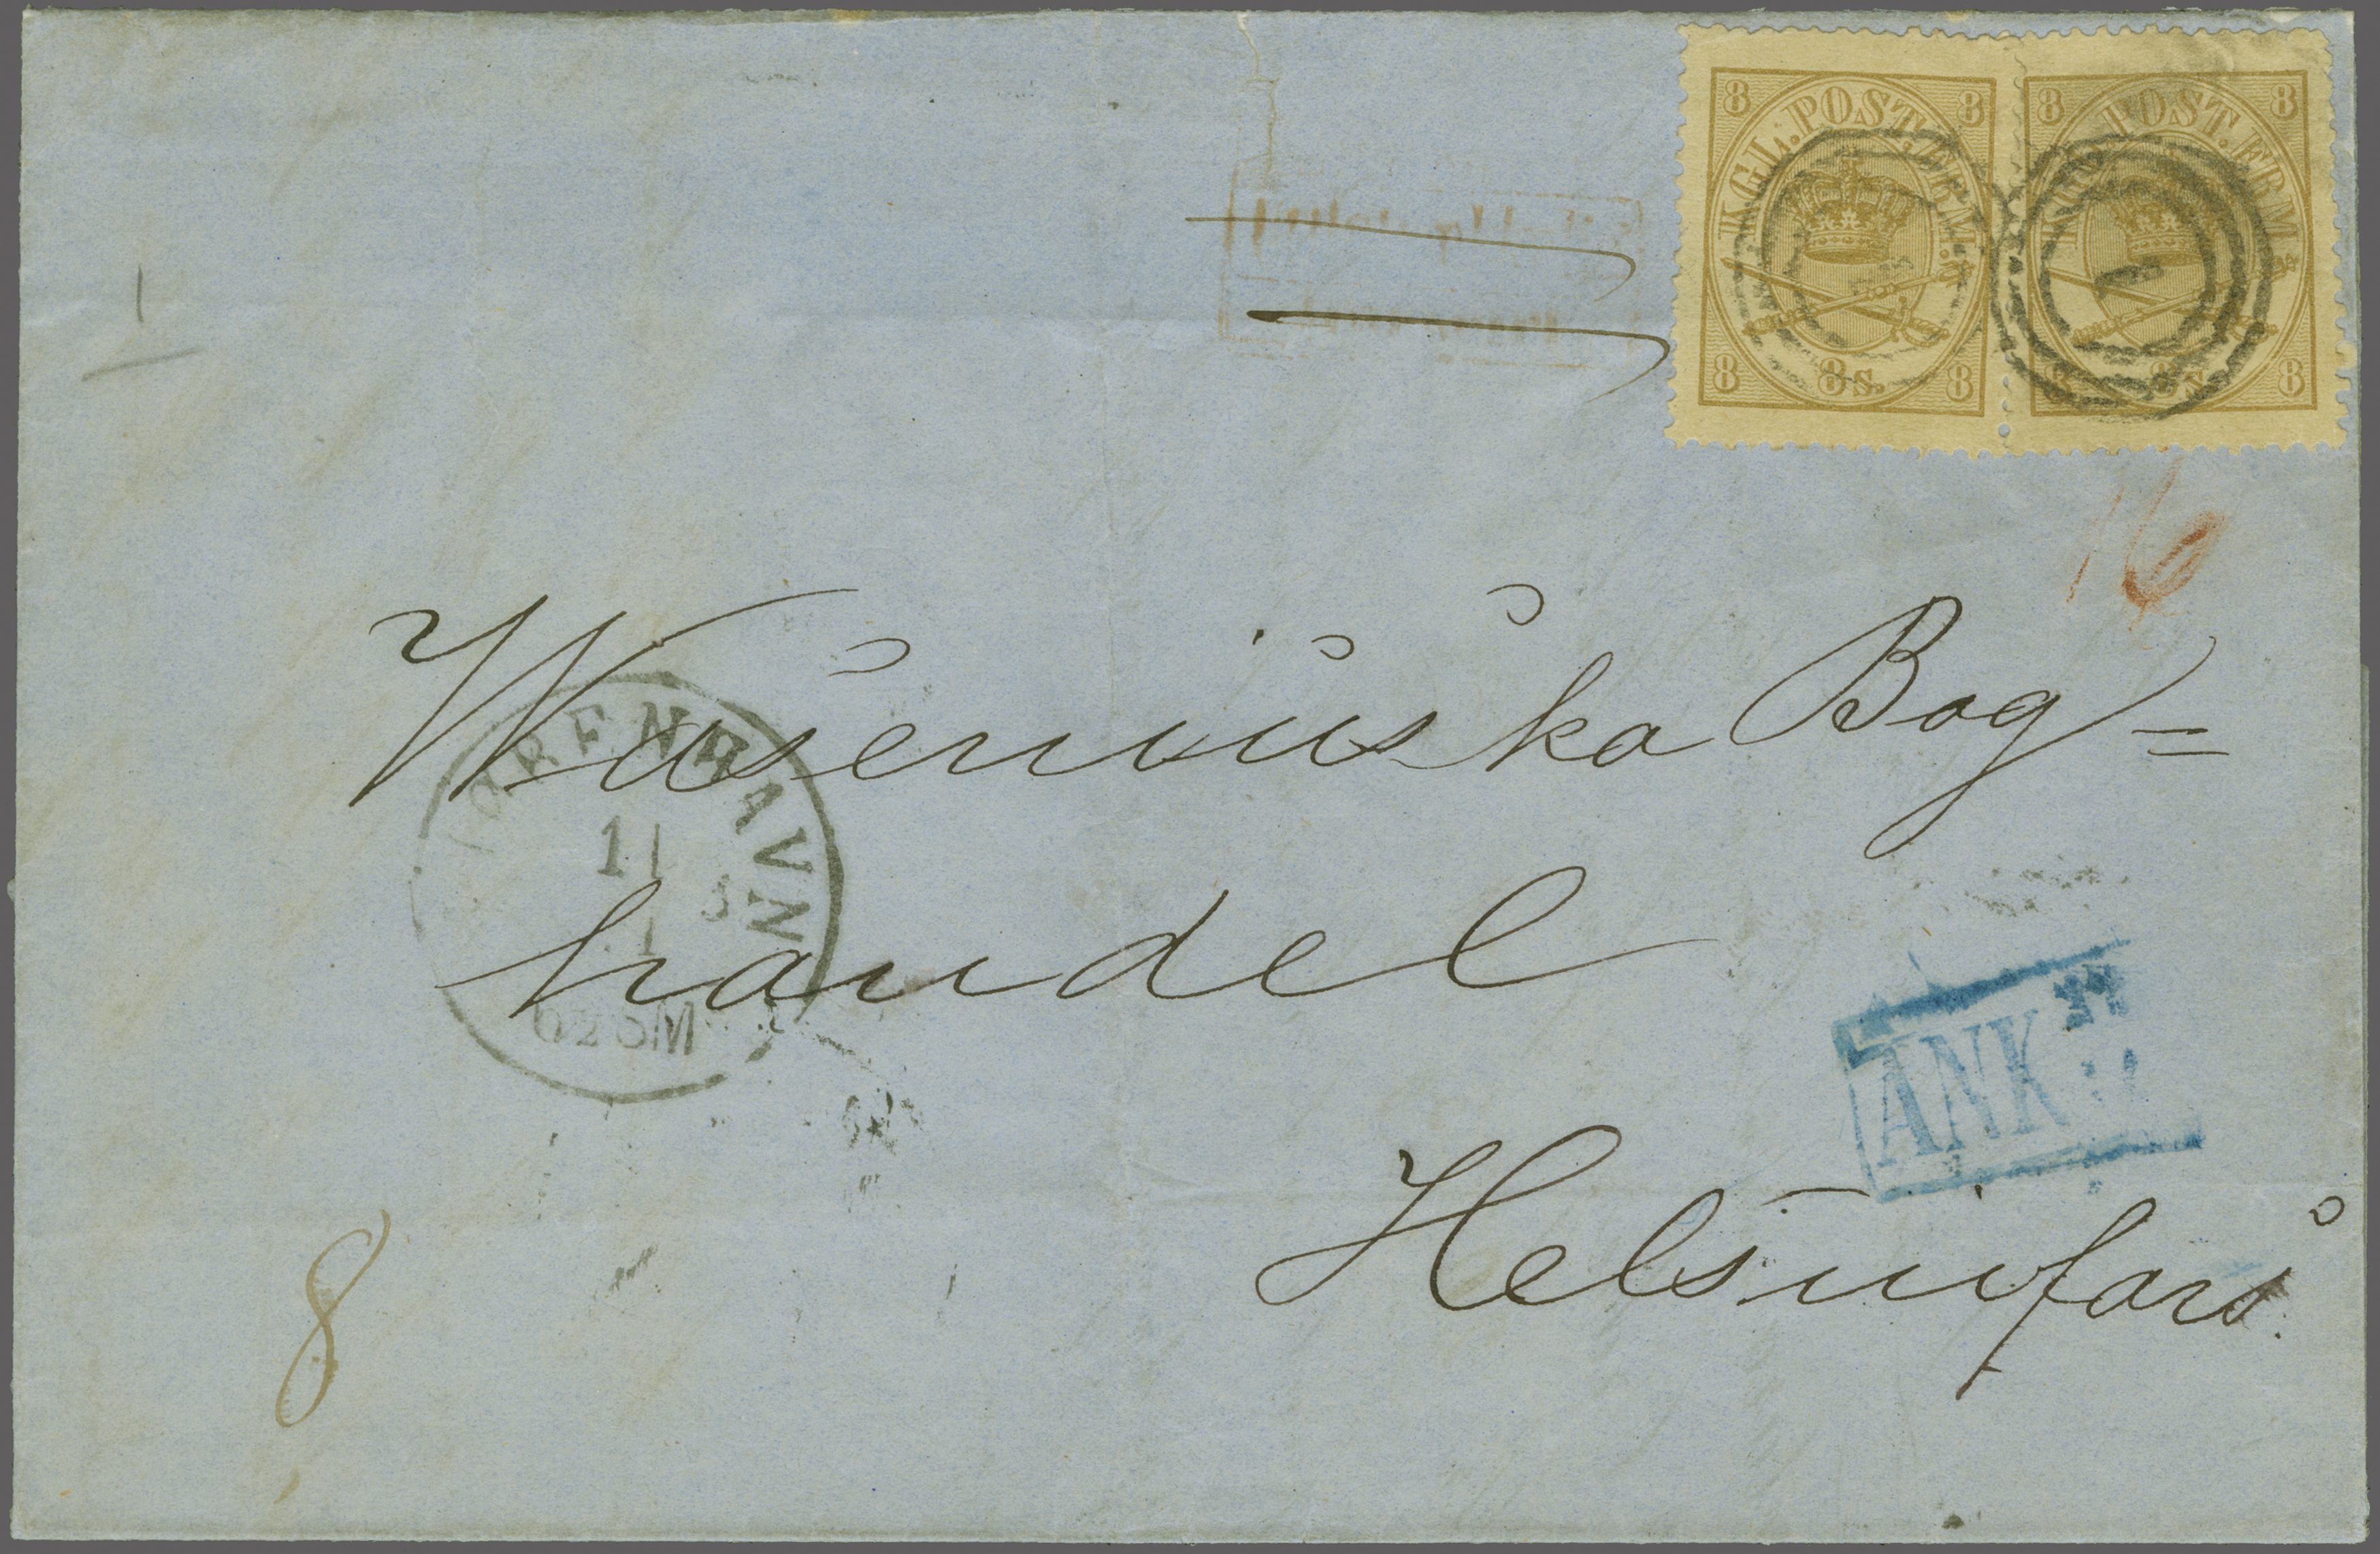 8 KGL. POST. FRM. 8
8 8 S. 8
8 KGL. POST. FRM. 8
8 8 S. 8
1
16
Waseniuska Bog=
handel
Helsinfors
KJØBENHAVN
11
1
ANK
8